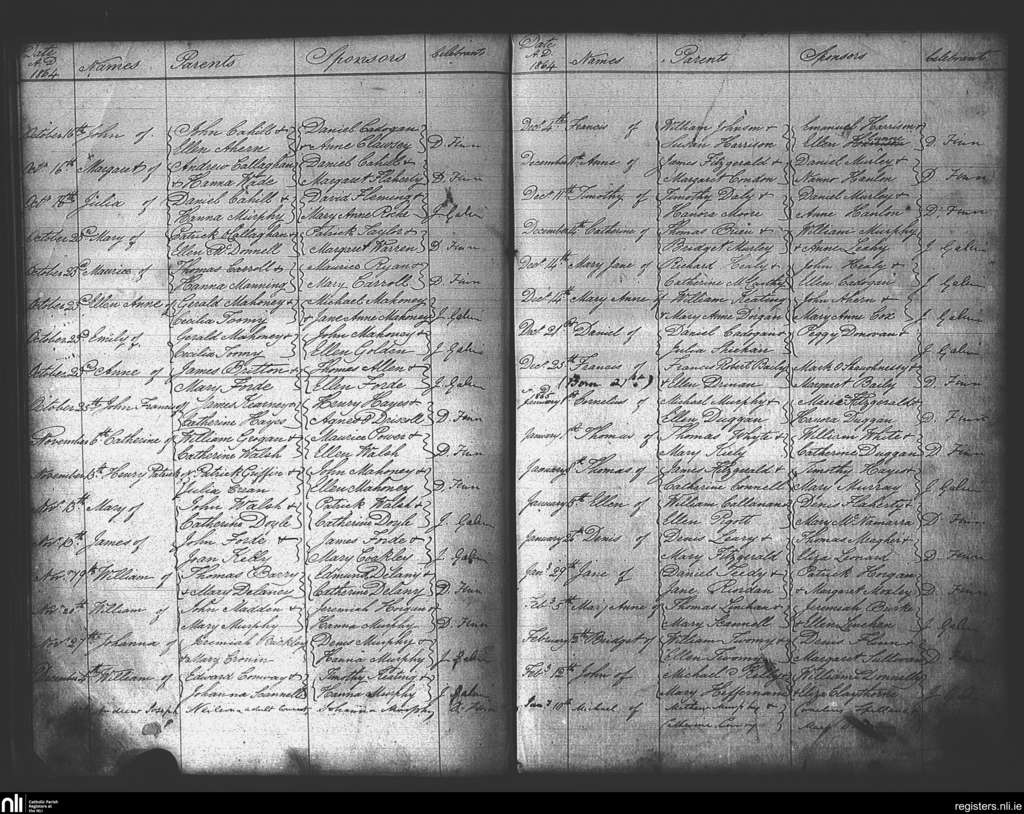 Date A.D. 1864 Names Parents Sponsors Celebrants
October 16th John of John Cahill & Daniel Cadogan
Ellen Ahern & Anne Clawsey D. Finn
Octr 16th Margaret of Andrew Callaghan Daniel Cahill &
& Hanna Wade Margaret Flaherty D. Finn
Octr Julia of Daniel Cahill & David Fleming
Hanna Murphy Mary Anne Roche J. Galvin
October 23d Mary of Patrick O'Callaghan & Patrick Taylor &
Ellen McDonnell Margaret Warren D. Finn
October 23d Maurice of Thomas Carroll & Maurice Ryan &
Hanna Manning Mary Carroll D. Finn
October 23d Ellen Anne of Gerald Mahoney & Michael Mahoney
Cecilia Toomy & Jane Anne Mahoney J. Galvin
October 23d Emily of Gerald Mahoney & John Mahoney &
Cecilia Toomy Ellen Golden J. Galvin
October 23d Anne of James Britton & Thomas Allen &
Mary Forde Ellen Forde J. Galvin
October 25th John Francis of James Kearney & Henry Hayes &
Catherine Hayes Agnes Driscoll D. Finn
November 6th Catherine of William Grogan & Maurice Power &
Catherine Walsh Ellen Walsh D. Finn
November 13th Henry Patrick Patrick Griffin & John Mahoney &
Julia Crean Ellen Mahoney D. Finn
Novr 13th Mary of John Walsh & Patrick Walsh &
Catherine Doyle Catherine Doyle J. Galvin
Novr James of John Forde & James Forde &
Joan Kiely Mary Coakley J. Galvin
Novr William of Thomas Barry Edmund Delany &
& Mary Delaney Catherine Delany D. Finn
Novr 20th William of John Madden & Jeremiah Horgan &
Mary Murphy Hanna Murphy D. Finn
Novr 27th Johanna of Jeremiah Buckley Denis Murphy &
& Mary Cronin Hanna Murphy J. Galvin
December William of Edward Conway & Timothy Keating &
Johanna Hannell Hanna Murphy J. Galvin
Joseph adult Johanna Murphy D. Finn
Date A.D. 1864 Names Parents Sponsors Celebrants
Decr 4th Francis of William Johnson & Emanuel Harrison &
Susan Harrison Ellen D. Finn
December Anne of James Fitzgerald & Daniel Murley &
Margaret Condon Nanno Hanlon D. Finn
Decr 11th Timothy of Timothy Daly & Daniel Murley &
Hanora Moore Anne Hanlon D. Finn
December Catherine of Thomas Brien & William Murphy
Bridget Murley & Anne Leahy J. Galvin
Decr 14th Mary Jane of Richard Healy & John Healy &
Catherine McCarthy Ellen Cadogan J. Galvin
Decr Mary Anne of William Keating John Ahern &
& Mary Anne Dorgan Mary Anne Cox J. Galvin
Decr 21st Daniel of Daniel Cadogan & Peggy Donovan
Julia Sheehan J. Galvin
Decr 25th Francis of Francis Robert Baily Mark O'Shaughnessy &
(Born 21st) & Ellen Drinan Margaret Baily D. Finn
1865
January 1st Cornelius of Michael Murphy & Maurice Fitzgerald &
Ellen Duggan Hanora Duggan D. Finn
January 1st Thomas of Thomas Whyte & William White &
Mary Kiely Catherine Duggan D. Finn
January Thomas of James Fitzgerald & Timothy Hayes &
Catherine Connell Mary Murray J. Galvin
January 8th Ellen of William Callanan Denis Flaherty &
Ellen Pigott Mary McNamara D. Finn
January Denis of Denis Leary & Thomas Meagher &
Mary Fitzgerald Eliza Leonard D. Finn
Jany 29th Jane of Daniel Tiedy & Patrick Horgan
Jane Riordan & Margaret Moxley D. Finn
Feby 5th Mary Anne of Thomas Linehan & Jeremiah Burke
Mary Hannell & Ellen Linehan J. Galvin
February Bridget of William Twomy & Denis Flinn &
Ellen Twomy Margaret Sullivan D.
Feby 12th John of Michael Kelly & William O'Donnell
Mary Heffernan & Eliza Claythorne J.
Jany Michael of Mathew Murphy & Cornelius
Catherine Mary
nli Catholic Parish Registers at the NLI
registers.nli.ie